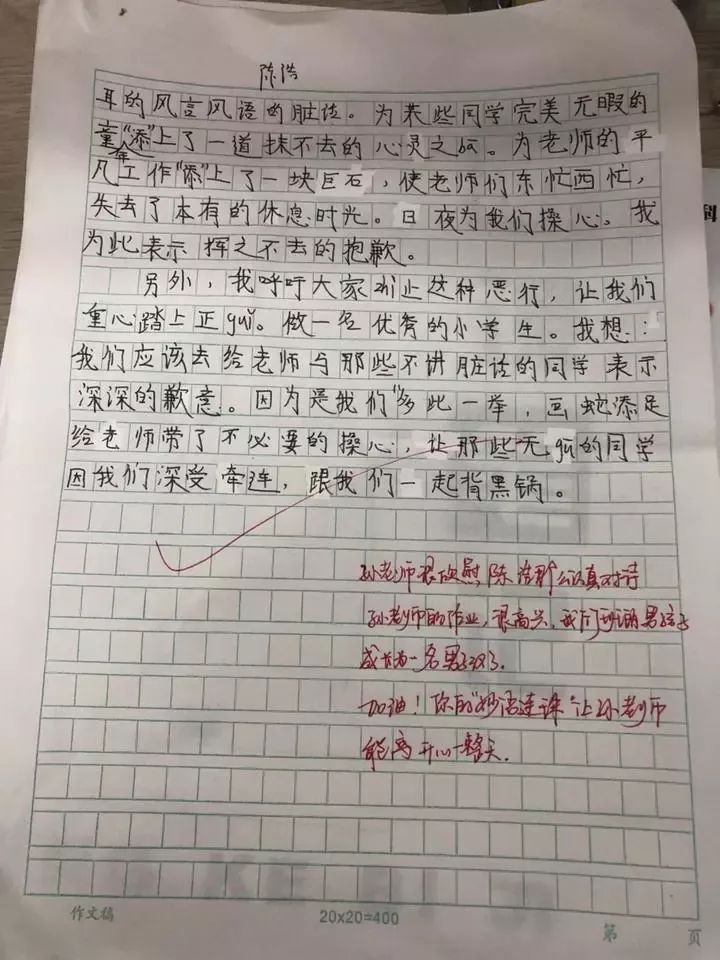 陈浩
耳的风言风语的脏话。为某些同学完美无暇的
童年"添"上了一道抹不去的心灵之ba。为老师的平
凡工作"添"上了一块巨石，使老师们东忙西忙，
失去了本有的休息时光。日夜为我们操心。我
为此表示挥之不去的抱歉。
另外，我呼吁大家zhi止这种恶行，让我们
重心踏上正gui。做一名优秀的小学生。我想：
我们应该去给老师与那些不讲脏话的同学表示
深深的歉意。因为是我们"多此一举，画蛇添足
给老师带了不必要的操心，让那些无gu的同学
因我们深受牵连，跟我们一起背黑锅。
孙老师很欣慰陈浩那么认真对待
孙老师的作业，很高兴，我们班的男孩子
成长为一名男子汉了。
加油！你的"妙语连珠"让孙老师
能高开心一整天.
作文稿
20x20=400
第 页
科